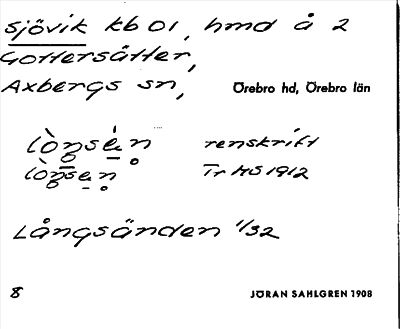 Sjövik kb 01, hmd å 2
Gottersätter,
Axbergs sn, Örebro hd, Örebro län
renskrift
Tr HS 1912
Långsänden 1/32
8 JÖRAN SAHLGREN 1908